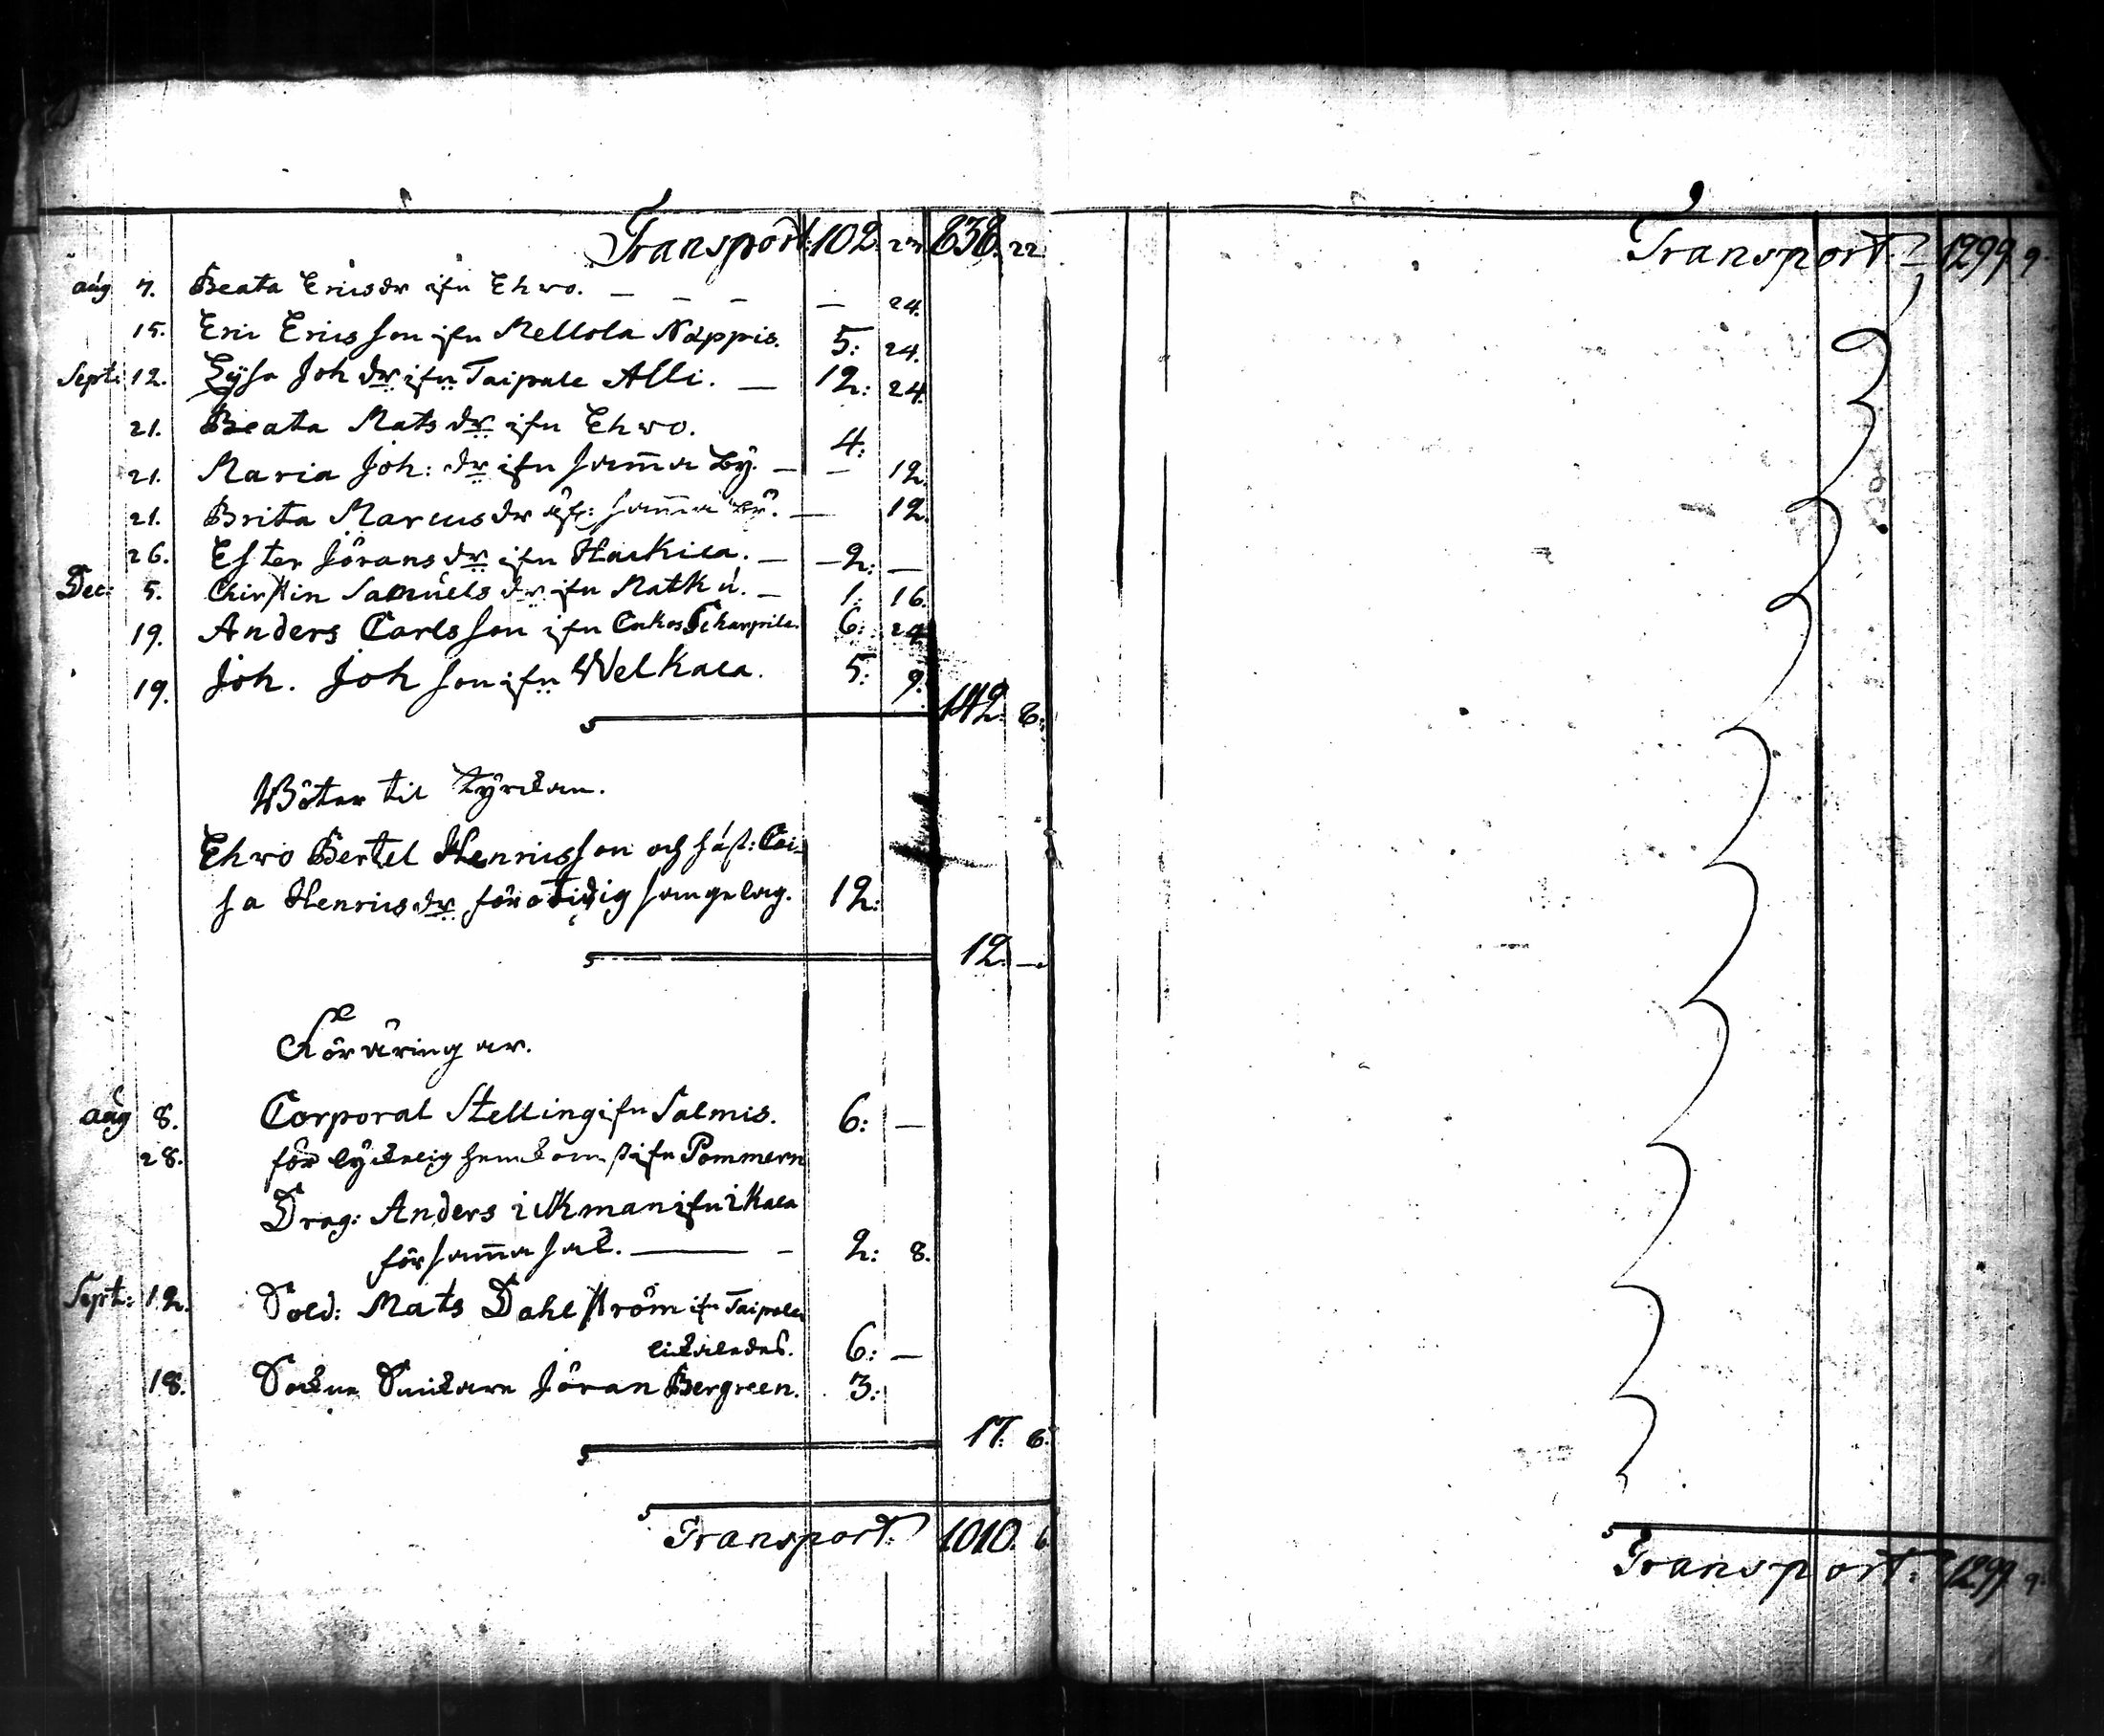 Transport: 102. 838. 22.
Aug 7. Beata Ericsdr ifn Ehwo. — — — — 24.
15. Eric Ericsson ifn Mellola Näppis. 5: 24.
Sept: 12. Lysa Joh dr ifn Taipale Alli. — 12: 24.
21. Beata Mats dr ifn Ehwo. 4:
21. Maria Joh: dr ifn samma By. — — 12.
21. Brita Marcus dr ifr: samma By. — 12.
26. Ester Jörans dr ifn — 2: —
Dec: 5. Chirstin Samuels dr ifn Natku. — 1: 16.
19. Anders Carlsson ifn 6: 24.
19. Joh. Joh son ifn Welkala. 5: 9.
142: 8.
Böter til Kyrckan.
Ehwo Bertel Henricsson och fäst: Cai-
sa Henricsdr för otidig sängelag. 12:
12. —
Föräring av.
Aug 8. Corporal Stelling ifn Salmis. 6: —
28. för lyckelig hemkomst ifn Pommern
Drag: Anders ickman ifn ikala
för samma sak. — — 2: 8.
Sept: 12. Sold: Mats Dahlström ifn Taipale
lickaledes. 6: —
18. Sockne Snickare Jöran Bergreen. 3:
17. 8.
Transport: 1010. 6.
Transport: 1299. 9.
Transport: 1299. 9.